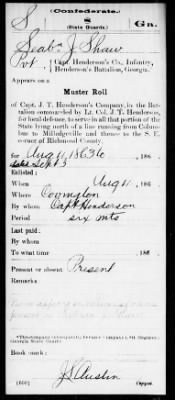 S (Confederate.) Gn.
(State Guards.)
Seab. J Shaw
Pvt Capt. Henderson's Co., Infantry,
Henderson's Battalion, Georgia.
Appears on a
Muster Roll
of Capt. J. T. Henderson's Company, in the Bat-
talion commanded by Lt. Col. J. T. Henderson,
for local defence, to serve in all that portion of the
State lying north of a line running from Colum-
bus to Milledgeville and thence to the S. E.
corner of Richmond County.
for Aug 11, 1863 , 186
Sept
Enlisted:
When Aug 11, 186
Where Covington
By whom Capt Henderson
Period six mts
Last paid:
By whom
To what time , 186
Present or absent Present
Remarks:
Book mark:
J S Austin
(650) Copyist.